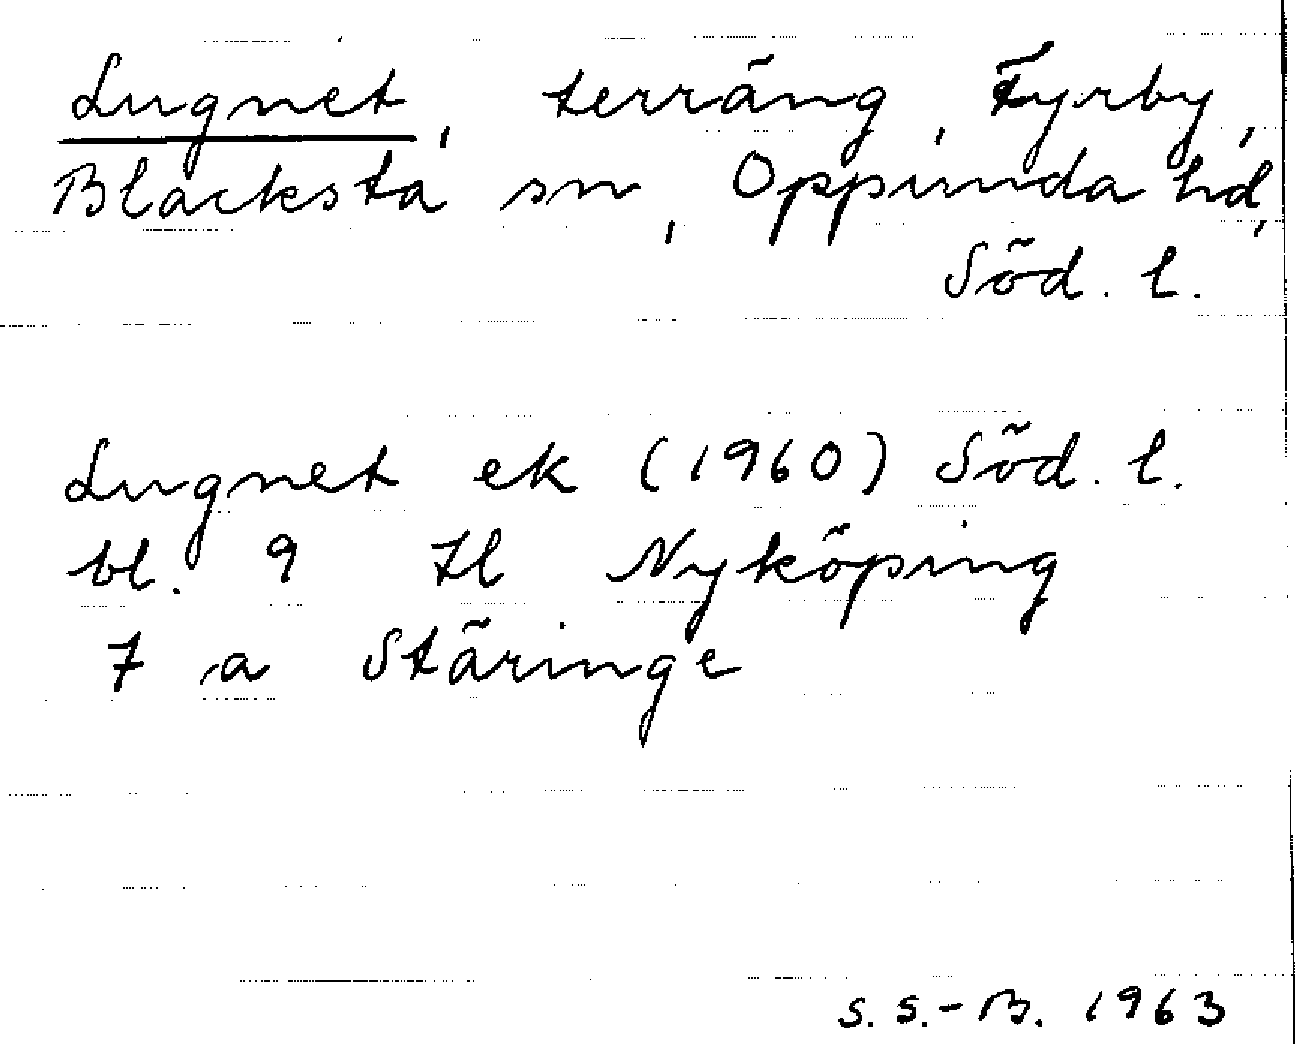 Lugnet, terräng, Fyrby,
Blacksta sn, Oppunda hd,
Söd. l.
Lugnet ek (1960) Söd. l.
bl. 9 H Nyköping
7 a Stäringe
S. S.-B. 1963